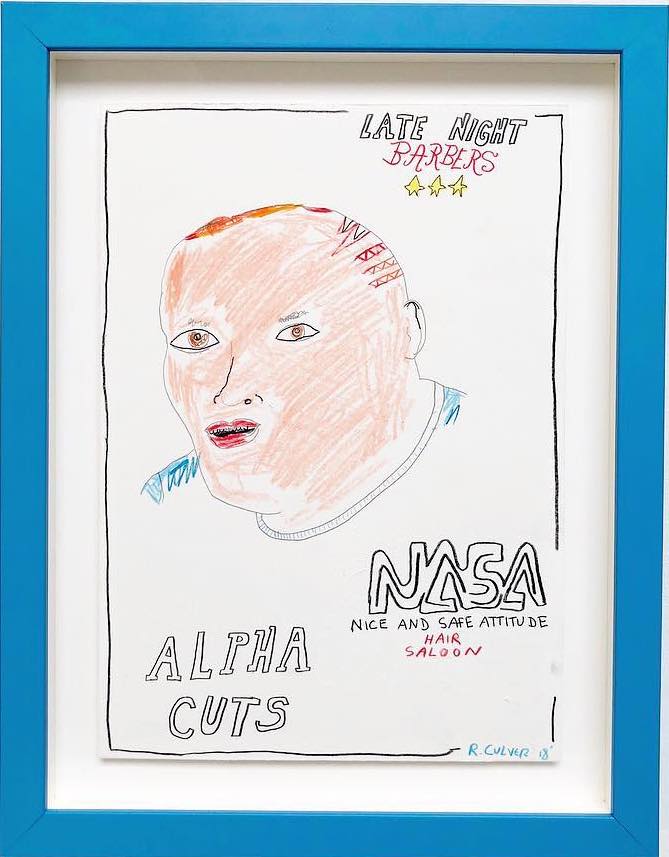 LATE NIGHT
BARBERS
NASA
NICE AND SAFE ATTITUDE
HAIR
SALOON
ALPHA
CUTS
R. CULVER 18'